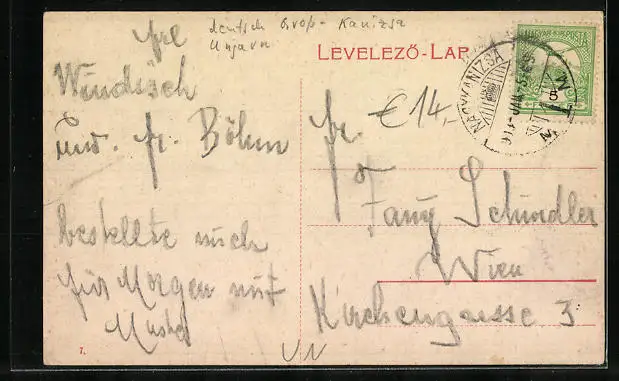 deutsch Gross-Kanizsa
Ungarn
LEVELEZŐ-LAP
MAGYAR KIR. POSTA
NAGYKANIZSA
€14,-
fr.
Windisch
und. fr. Böhm
bestellte mich
für Morgen mit
fr.
Fany Schindler
Wien
Kirchengasse 3
7.